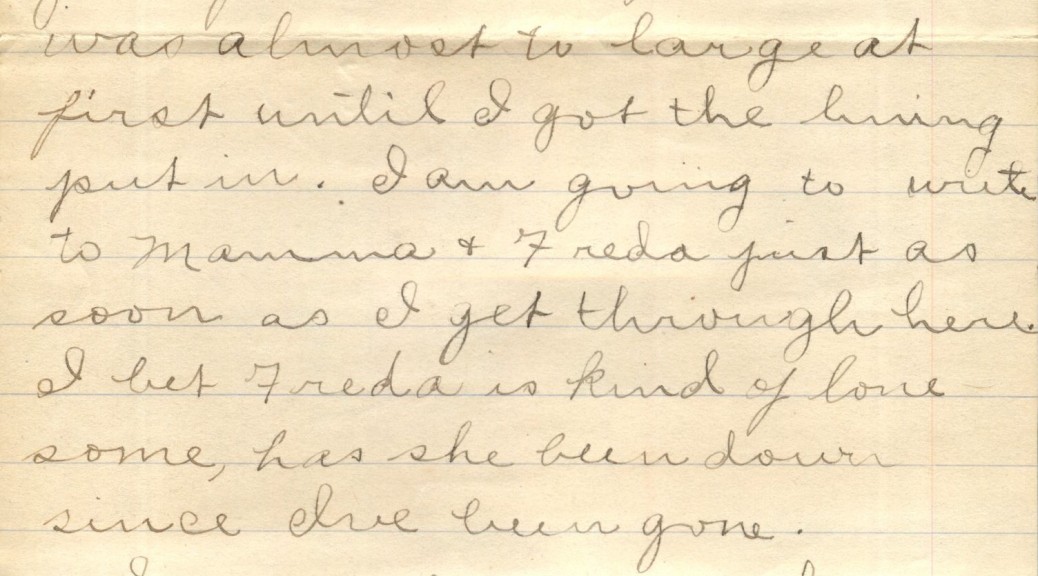 was almost to large at
first until I got the lining
put in. I am going to write
to Mamma + Freda just as
soon as I get through here.
I bet Freda is kind of lone
some, has she been down
since I've been gone.